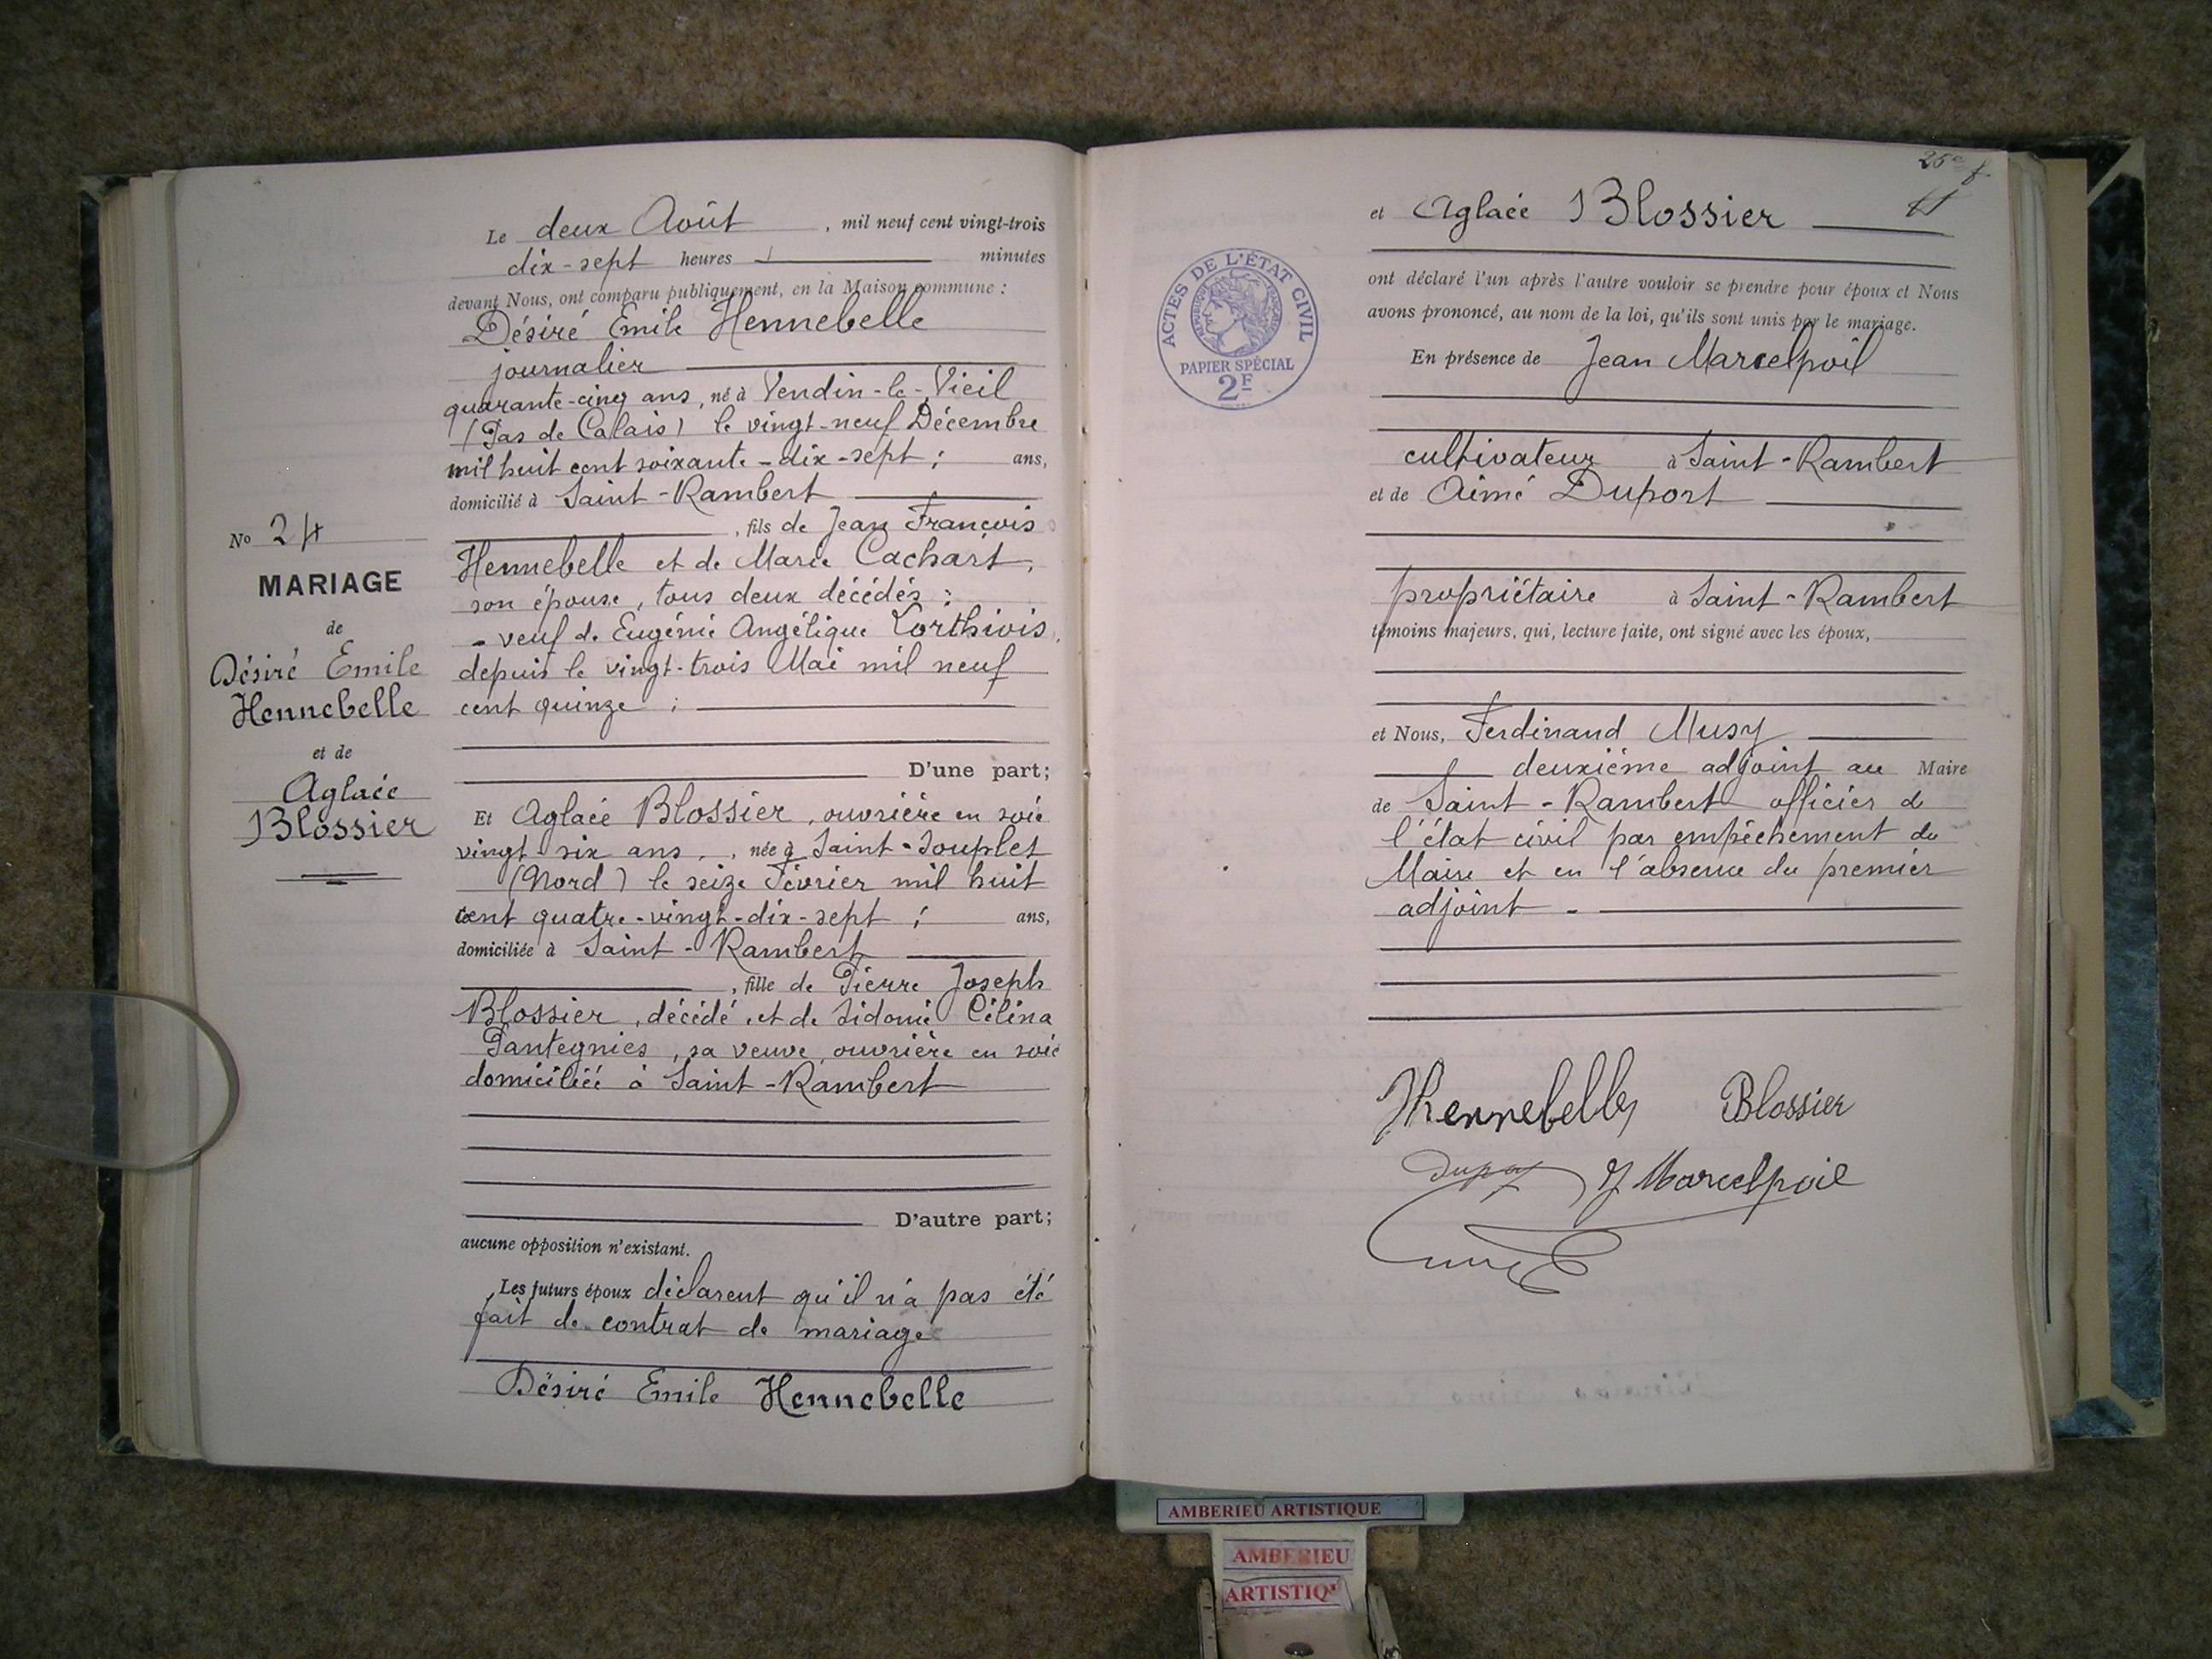 No 24
MARIAGE
de
Désiré Emile
Hennebelle
et de
Aglaée
Blossier
Le deux Août, mil neuf cent vingt-trois
dix-sept heures minutes
devant Nous, ont comparu publiquement, en la Maison commune :
Désiré Emile Hennebelle
journalier
quarante-cinq ans, né à Vendin-le-Vieil
(Pas de Calais) le vingt-neuf Décembre
mil huit cent soixante-dix-sept ; ans,
domicilié à Saint-Rambert
, fils de Jean François
Hennebelle et de Marie Cachart,
son épouse, tous deux décédés ;
- veuf de Eugénie Angélique Lorthiois,
depuis le vingt-trois Mai mil neuf
cent quinze ;
D'une part;
Et Aglaée Blossier, ouvrière en soie
vingt-six ans, née à Saint-Souplet
(Nord) le seize Février mil huit
cent quatre-vingt-dix-sept ; ans,
domiciliée à Saint-Rambert
, fille de Pierre Joseph
Blossier, décédé, et de Sidonie Célina
Pantegnies, sa veuve, ouvrière en soie
domiciliée à Saint-Rambert
D'autre part;
aucune opposition n'existant.
Les futurs époux déclarent qu'il n'a pas été
fait de contrat de mariage
Désiré Emile Hennebelle
25e f.
et Aglaée Blossier
ACTES DE L'ÉTAT CIVIL
PAPIER SPÉCIAL
2F
ont déclaré l'un après l'autre vouloir se prendre pour époux et Nous
avons prononcé, au nom de la loi, qu'ils sont unis par le mariage.
En présence de Jean Marcelpoil
cultivateur à Saint-Rambert
et de Aimé Duport
propriétaire à Saint-Rambert
témoins majeurs, qui, lecture faite, ont signé avec les époux,
et Nous, Ferdinand Musy
deuxième adjoint au Maire
de Saint-Rambert officier de
l'état civil par empêchement du
Maire et en l'absence du premier
adjoint -
Hennebelle Blossier
J Marcelpoil
AMBERIEU ARTISTIQUE
AMBERIEU
ARTISTIQ